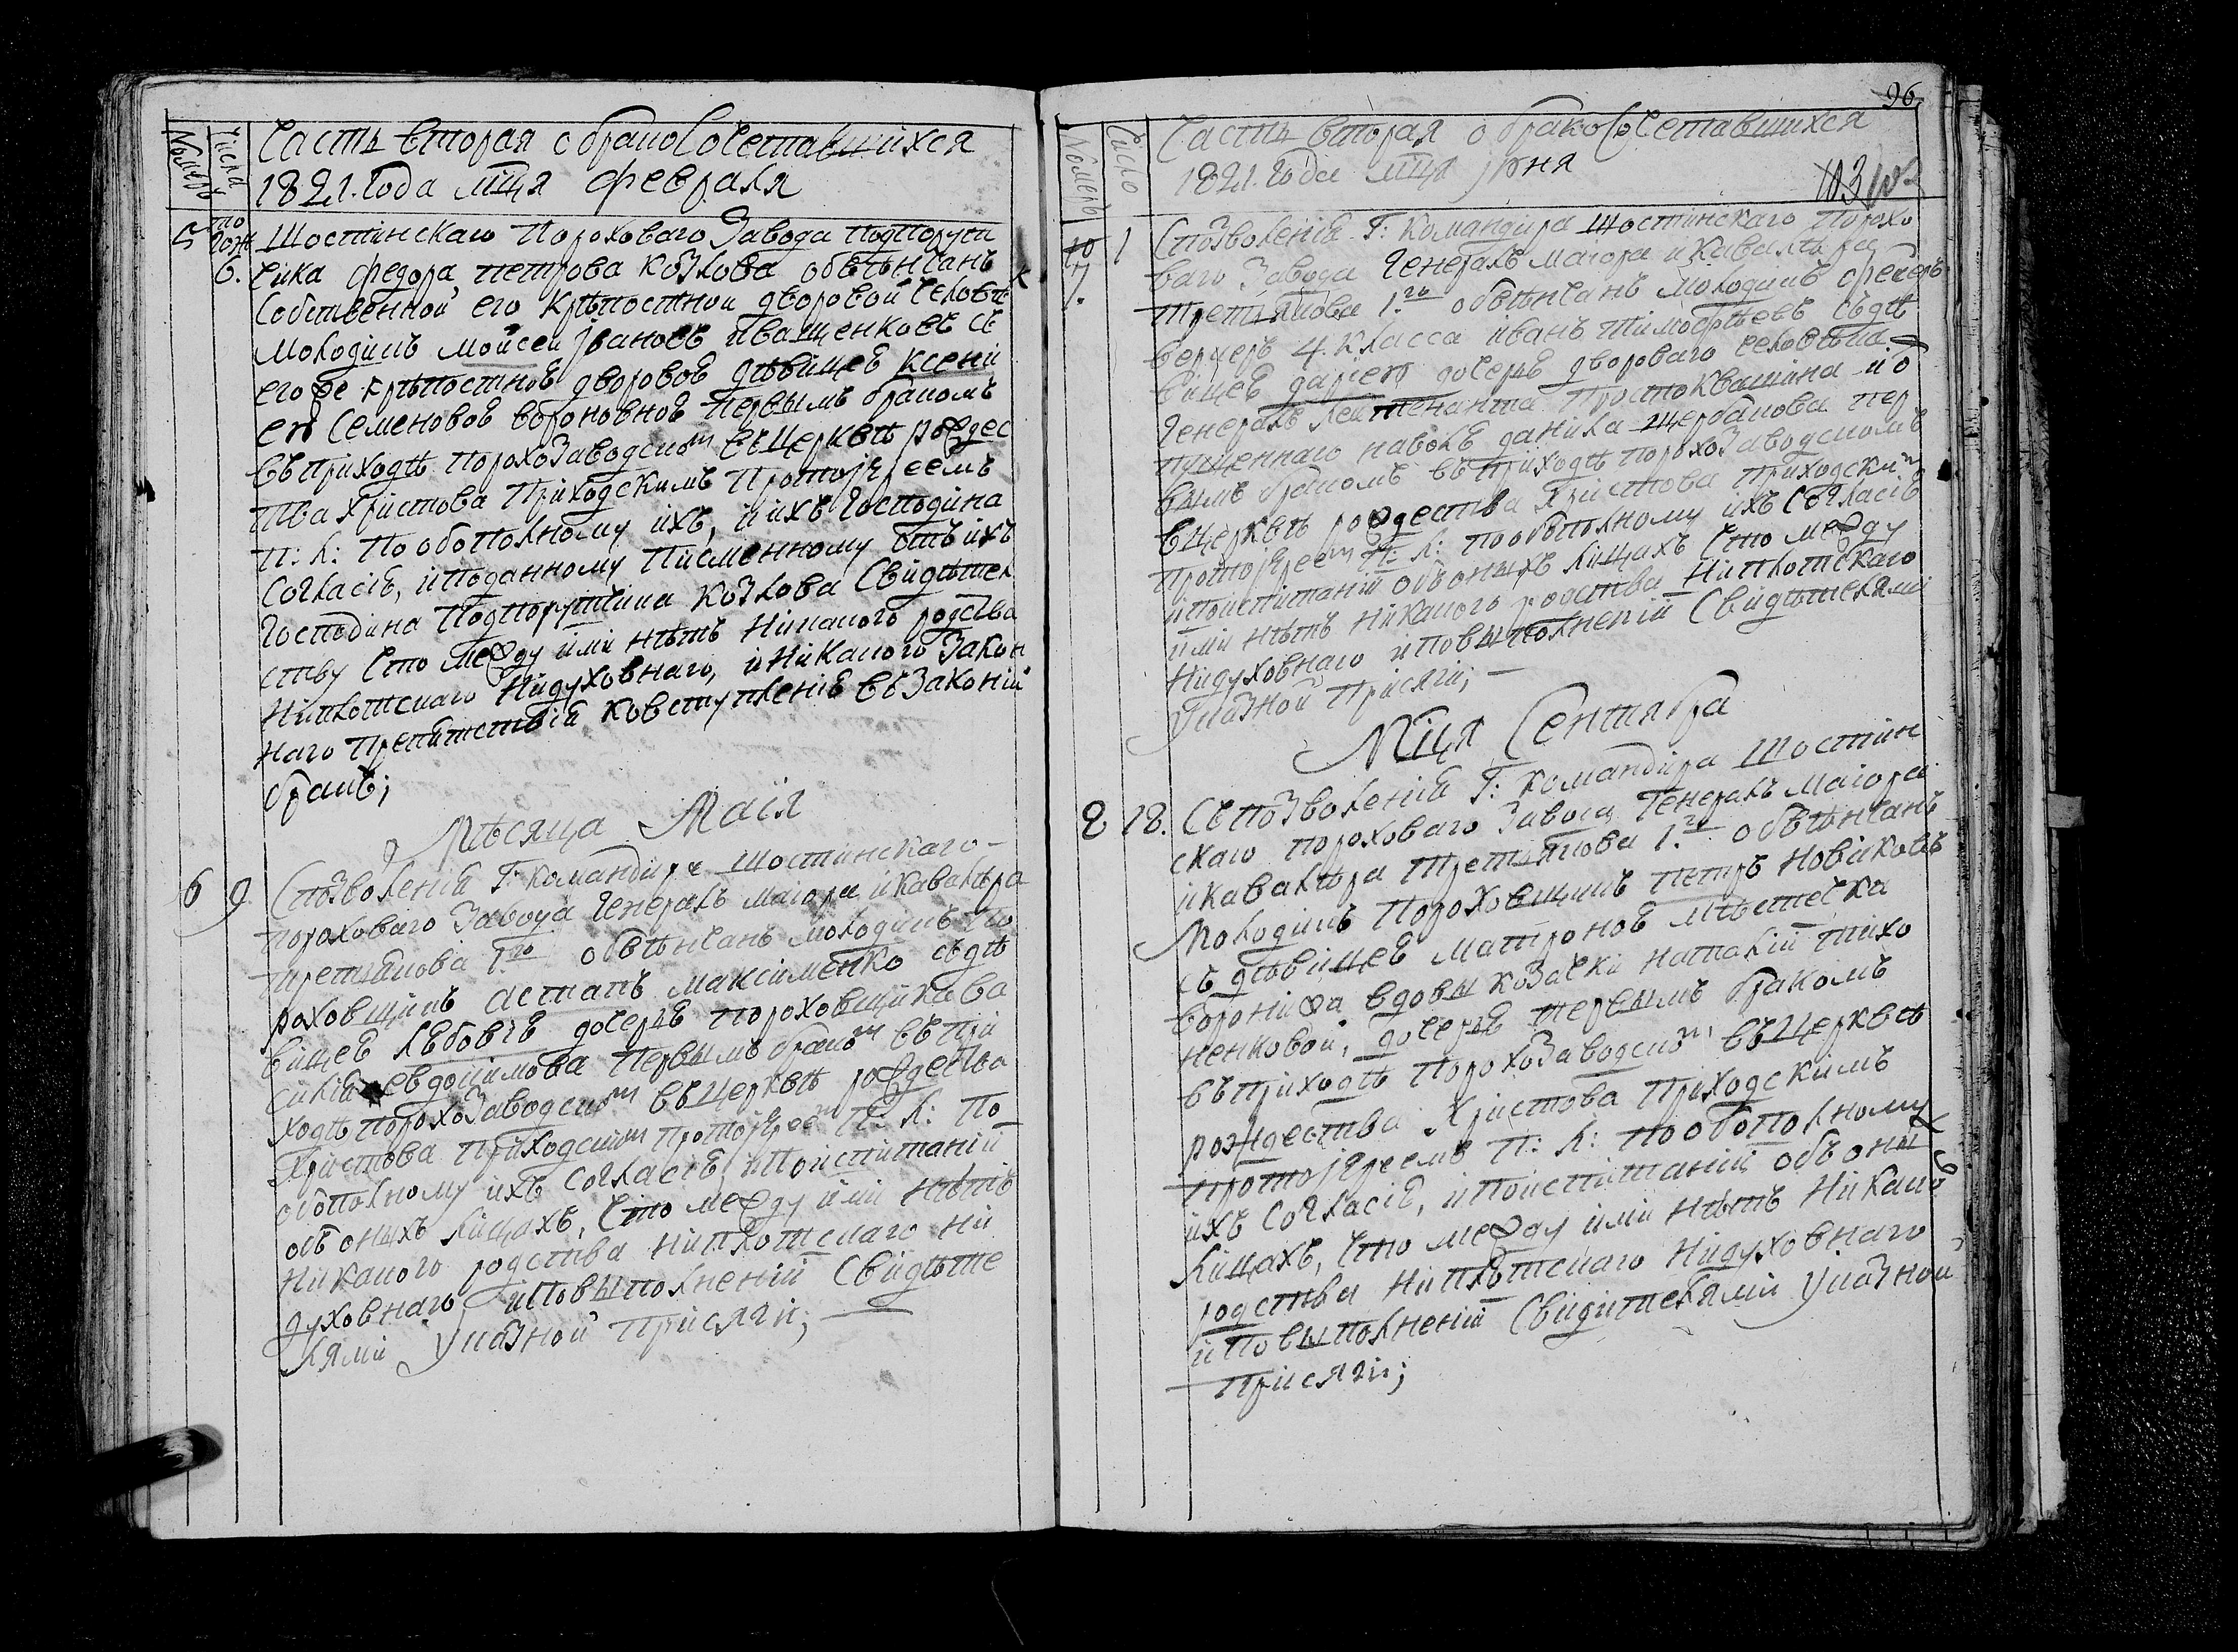 Номеръ
Числа
Часть вторая о бракосочетавшихся
1821. года мця февраля
5
тогож
6.
Шостинскаго пороховаго завода подпору
чика федора петрова козлова обвѣнчанъ
собственной его крѣпостной дворовой человѣкъ
молодикъ мойсей Ївановъ иващенковъ съ
его же крѣпостноѣ дворовоѣ дѣвицеѣ ксенї
ею семеновоѣ вороновноѣ первымъ бракомъ
въ приходѣ порохозаводском въ церквѣ рождес
тва христова приходскимъ протоїереемъ
п: л: по обополному ихъ, и ихъ господина
согласїѣ, и поданному писменному отъ ихъ
господина подпоручика козлова свидѣтел
ству что между ими нѣтъ никакого родства
ни плотскаго ни духовнаго, и никакого закон
наго препятствїя ко вступленїѣ въ законїй
бракъ;
Мѣсяца Маїя
6 9
С позволенїя Г: командира шостинскаго
пороховаго завода генералъ маїора и кавалѣра
третьякова 1.го обвѣнчанъ молодикъ по
роховщикъ астапъ максименко съ дѣ
вицеѣ лѣбовѣѣ дочерьѣ пороховщика ва
силїя евдокимова первымъ браком въ при
ходѣ порохозаводском въ церквѣ рождества
христова приходским протоїерее м п: л: по
обополному ихъ согласїѣ, и по испитанїй
объ оныхъ лицахъ, что между ими нѣтъ
никакого родства ни плотскаго ни
духовнаго, и по выполненїй свидѣте
лями указной присяги;
96
Номеръ
Число
Часть вторая о бракосочетавшихся
1821. года мця їюня
7. 1
С позволенїя Г: командира шостинскаго порохо
ваго завода генералъ маїора и кавалѣра
третьякова 1.го обвѣнчанъ молодикъ фейер
веркеръ 4. класса иванъ тимофѣевъ съ дѣ
вицеѣ дарїею дочерьѣ двороваго человѣка
генералъ лейтенанта простоквашина и о
пущеннаго на волѣ данила щербакова пер
вымъ бракомъ въ приходѣ порохозаводскомъ
в церквѣ рождества христова приходским
протоїерее м п: л: по обополному ихъ согласїѣ
и по испитанїй объ оныхъ лицахъ что между
ими нѣтъ никакого родства ни плотскаго
ни духовнаго и по выполненїй свидѣтелями
указной присяги;
Мця Сентября
8 18.
Съ позволенїя Г: командира Шостин
скаго пороховаго завода генералъ маїора
и кавалѣра третьякова 1.го обвѣнчанъ
молодикъ пороховщикъ петръ новиковъ
съ дѣвицеѣ матроноѣ мѣстечка
воронїжа вдовы козачки наталїй тихо
ненковой, дочерьѣ первымъ бракомъ
въ приходѣ порохозаводском въ церквѣ
рождества Христова приходскимъ
протоїереемъ п: л: по обополному
ихъ согласїѣ, и по испитанїй объ оныхъ
лицахъ, что между ими нѣтъ никакого
родства ни плотскаго ни духовнаго
и по выполненїй свидѣтелями указной
присяги;